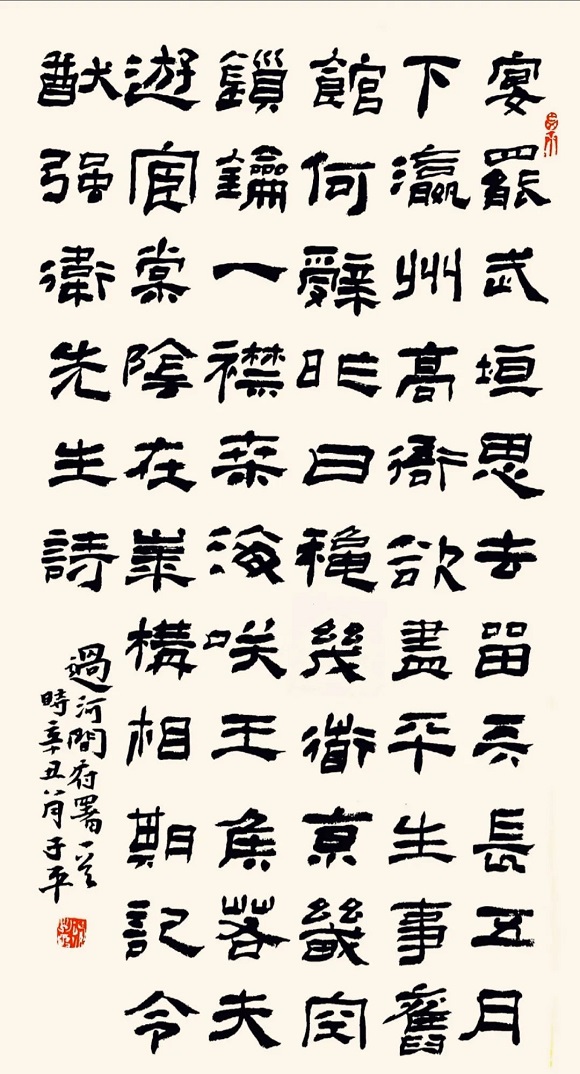 宴罷武垣思去留天長五月
下瀛州高衙欲盡平生事舊
館何辭昨日穐幾衛京畿空
鎖鑰一襟桑海咲王侯若夫
遊宦棠陰在業構相期記令
猷强衛先生詩
過河間府署一首
時辛丑肖子平